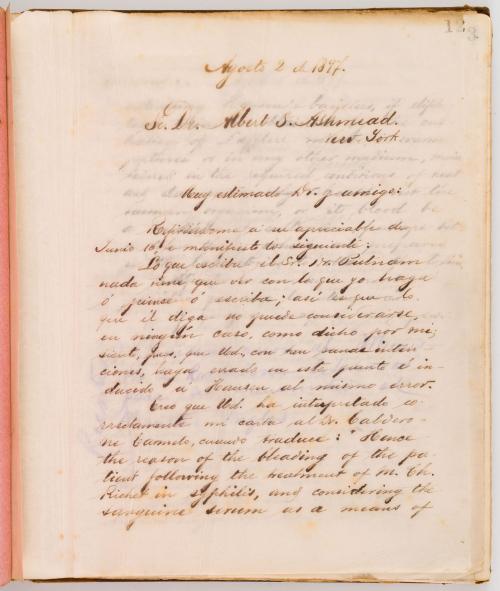 123
Agosto 2 de 1897.
Sr. Dr. Albert S. Ashmead.
New York
Muy estimado Dr. y amigo:
Refiriéndome a su apreciable de
Junio 16 le manifiesto lo siguiente:
Lo que escribe el Sr. Dr. Putnam
nada tiene que ver con lo que yo haga
ó piense ó escriba; así es que lo
que él diga no puede considerarse,
en ningún caso, como dicho por mi;
siento, pues, que Ud. con tan sanas inten-
ciones, haya errado en este punto é in-
ducido a Hansen al mismo error.
Creo que Ud. ha interpretado co-
rrectamente mi carta al Dr. Caldero-
ne Carmelo, cuando traduce: "Hence
the reason of the bleading of the pa-
tient following the treatment of M. Ch.
Richet in syphilis, and considering the
sanguine serum as a means of